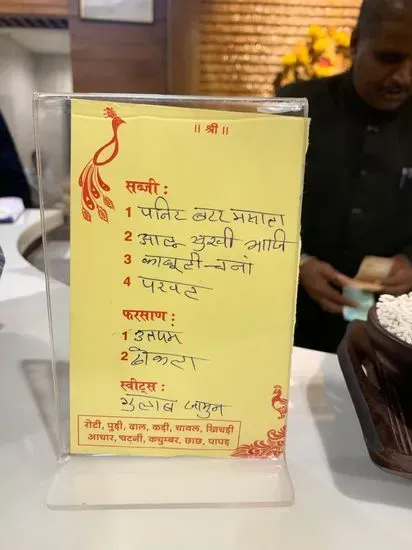 ॥ श्री ॥
सब्जी :
1 पनिर बटर मसाला
2 आलू सुखी भाजि
3 काबूली चना
4 परवल
फरसाण :
1 उत्तपम
2 ढोकला
स्वीट्स :
गुलाब जामुन
रोटी, पुड़ी, दाल, कढ़ी, चावल, खिचड़ी
आचार, चटनी, कचुम्बर, छाछ, पापड़